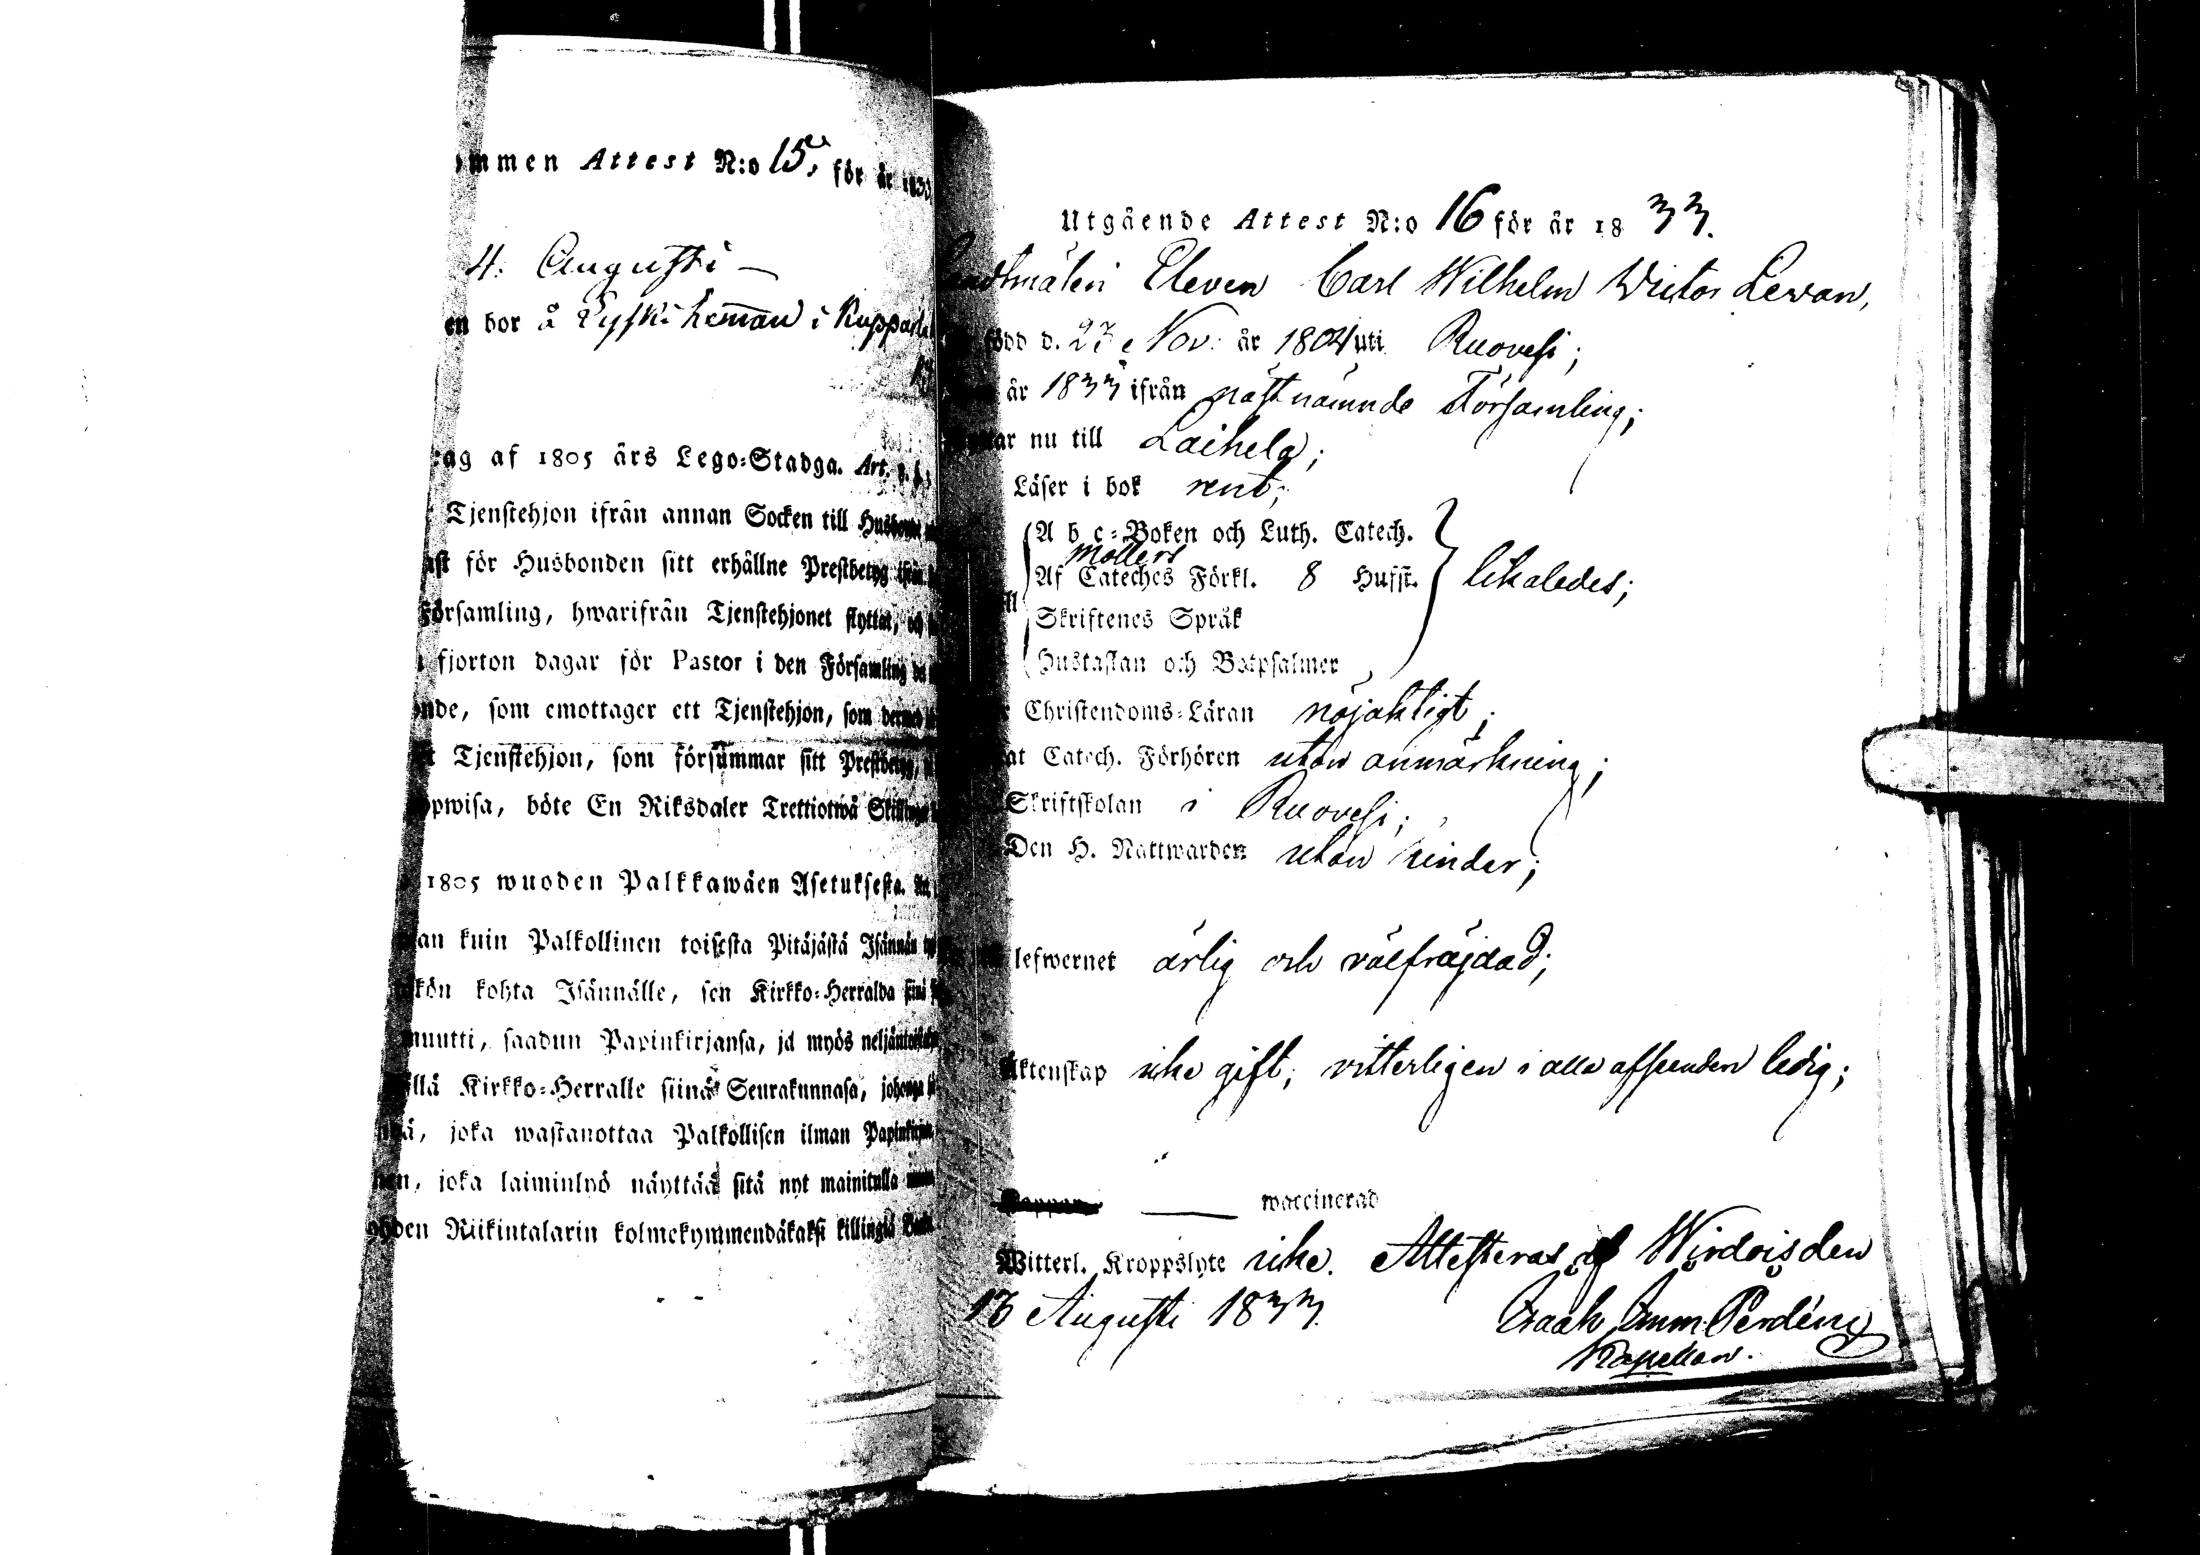 ommen Attest N:o 15, för år 1833
4. Augusti —
en bor å Lyski hemman i Ruppa
rag af 1805 års Lego-Stadga. Art.
Tjenstehjon ifrån annan Socken till Husbonde
ast för Husbonden sitt erhållne Prestbetyg ifrån
Församling, hwarifrån Tjenstehjonet flyttat, och
fjorton dagar för Pastor i den Församling
onde, som emottager ett Tjenstehjon, som
Tjenstehjon, som försummar sitt Prestbetyg,
ppwisa, böte En Riksdaler Trettiotwå Skillingar
1805 wuoden Palkkawäen Asetuksesta.
an kuin Palkollinen toisesta Pitäjästä Isännän
kön kohta Isännälle, sen Kirkko-Herralda
muutti, saadun Papinkirjansa, ja myös
llä Kirkko-Herralle siinä Seurakunnasa,
ä, joka wastanottaa Palkollisen ilman
n, joka laiminlyö näyttää sitä nyt mainitulla
hden Riikintalarin kolmekymmendäkaksi killingiä
Utgående Attest N:o 16 för år 1833.
Landtmäteri Eleven Carl Wilhelm Victor Lewan,
född d. 27 Nov: år 1804 uti Ruovesi;
år 1833 ifrån nästnämnde Församling;
ar nu till Laihela;
Läser i bok rent;
A b c-Boken och Luth. Catech.
Möllers
Af Cateches Förkl. 8 Hufst. likaledes;
Skriftenes Språk
Hustaflan och Botpsalmer
Christendoms-Läran nöjaktigt;
at Catech. Förhören utan anmärkning;
Skriftskolan i Ruovesi;
Den H. Nattwarden utan hinder;
lefwernet ärlig och välfräjdad;
Äktenskap icke gift; vitterligen i alla afseenden ledig;
Koppor — waccinerad
Witterl. Kroppslyte icke. Attesteras af Wirdois den
13 Augusti 1833. Isaak Imm. Perdén
Kapellan.